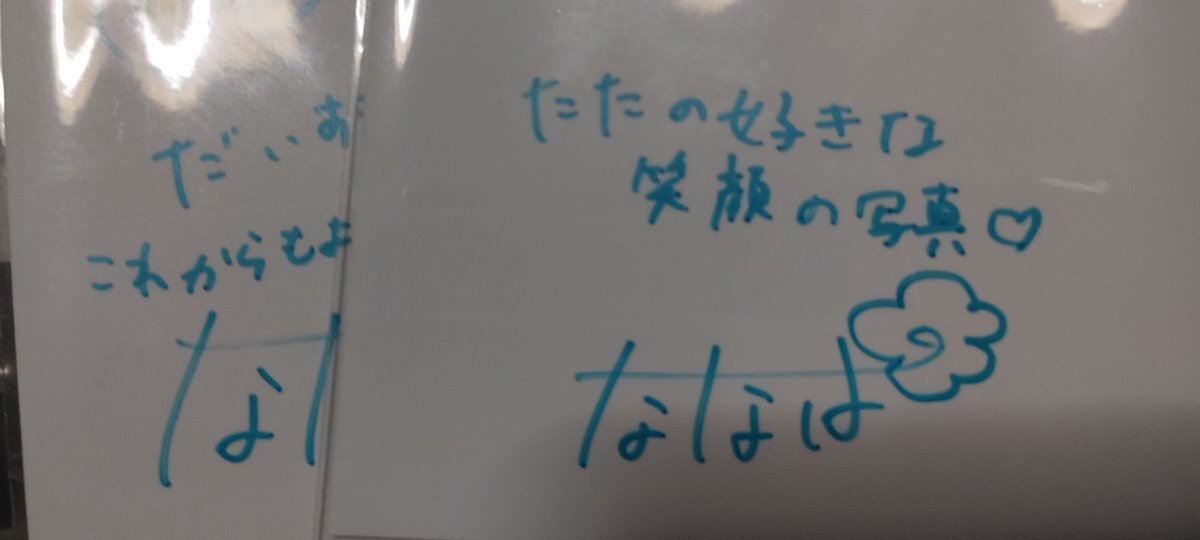 だいあ
これからもよ
な
たたの好きな
笑顔の写真♡
ななは